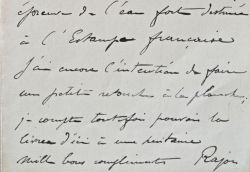 épreuve de l'eau forte destinée
à l'Estampe française
J'ai encore l'intention de faire
une petite retouche à la planche,
je compte toutefois pouvoir la
livrer d'ici à une huitaine
mille bons compliments Rajon